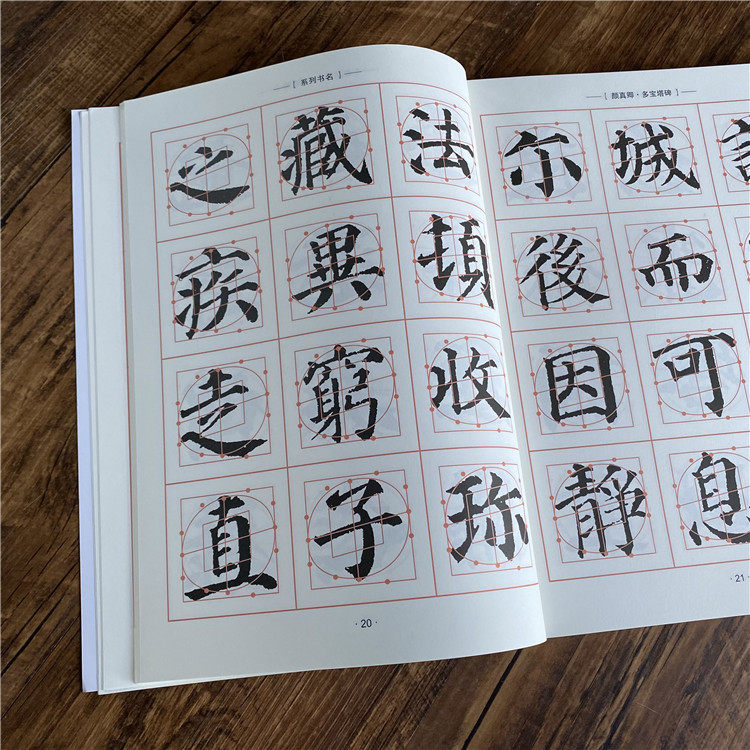 [ 系列书名 ]
之 藏 法
疾 異 頓
走 窮 收
直 子 珎
· 20 ·
[ 颜真卿 · 多宝塔碑 ]
尓 城
後 而
因 可
静 息
· 21 ·